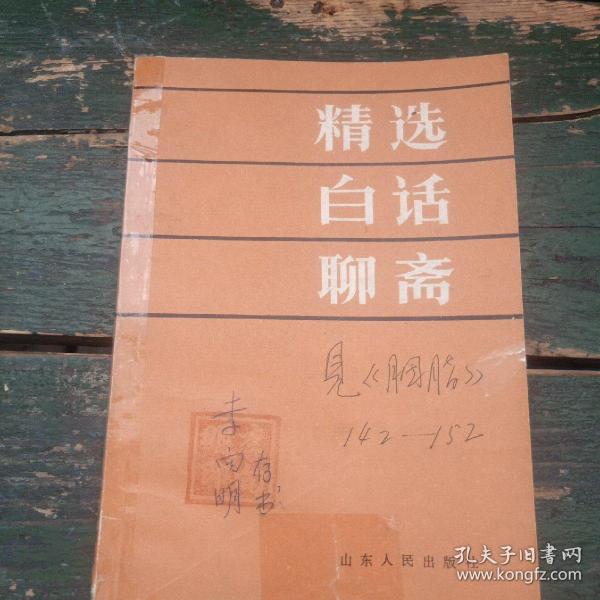 精选
白话
聊斋
見《胭脂》
142—152
李向明
存书
山东人民出版社
孔夫子旧书网
kongfz.com